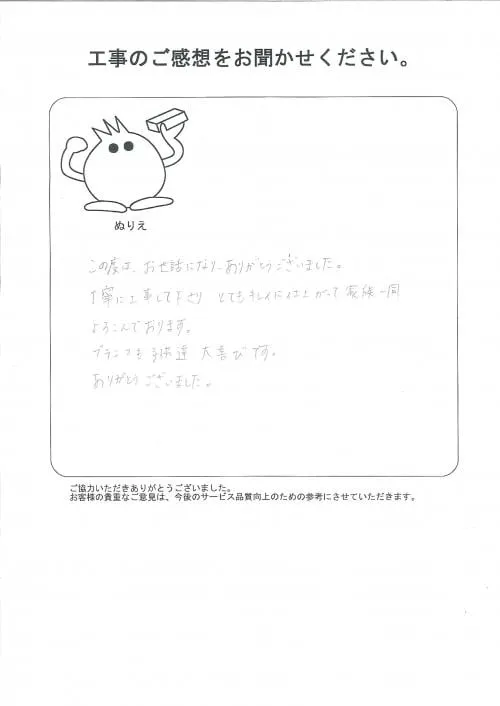 工事のご感想をお聞かせください。
ぬりえ
この度は、お世話になり、ありがとうございました。
丁寧に工事して下さり とてもキレイに仕上がって家族一同
よろこんでおります。
ブランコも子供達 大喜びです。
ありがとうございました。
ご協力いただきありがとうございました。
お客様の貴重なご意見は、今後のサービス品質向上のための参考にさせていただきます。